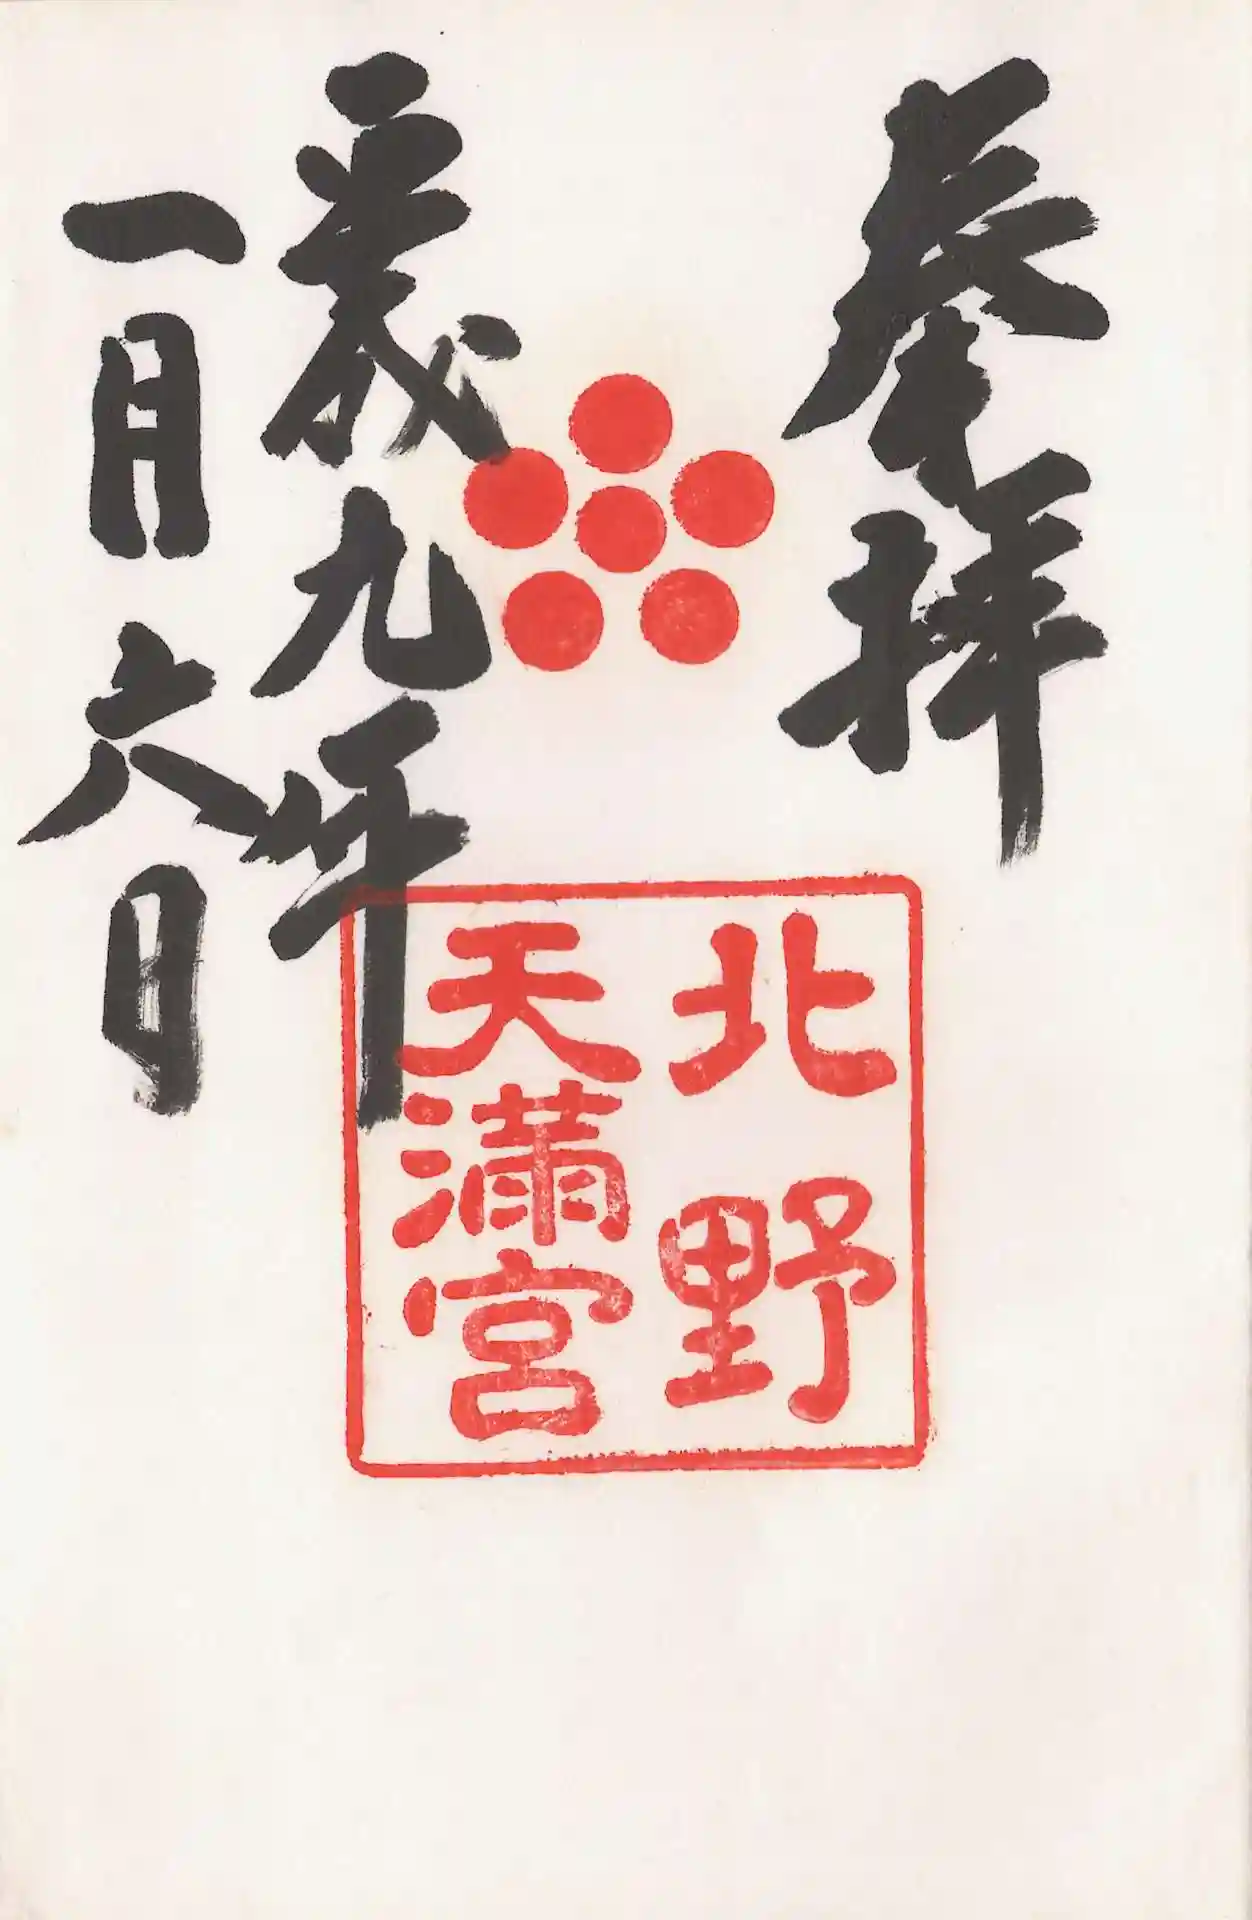 奉拝
北野
天満宮
平成九年
一月六日